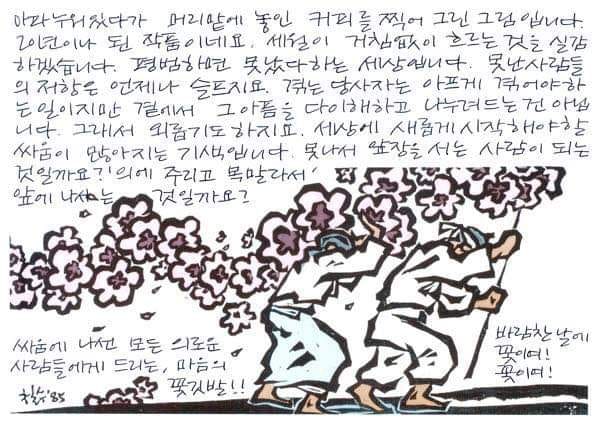 아파 누워있다가 머리맡에 놓인 커피를 찍어 그린 그림입니다.
20년이나 된 작품이네요. 세월이 거침없이 흐르는 것을 실감
하겠습니다. 평범하면 못났다 하는 세상입니다. 못난 사람들
의 저항은 언제나 슬프지요. 겪는 당사자는 아프게 겪어야하
는 일이지만 곁에서 그 아픔을 다 이해하고 나누려드는건 아닙
니다. 그래서 외롭기도 하지요. 세상에 새롭게 시작해야할
싸움이 많아지는 기색입니다. 못나서 앞장을 서는 사람이 되는
것일까요? '의에 주리고 목말라서'
앞에 나서는 것일까요?
싸움에 나선 모든 의로운
사람들에게 드리는, 마음의
꽃깃발!!
철수 '85
바람찬 날에
꽃이여!
꽃이여!